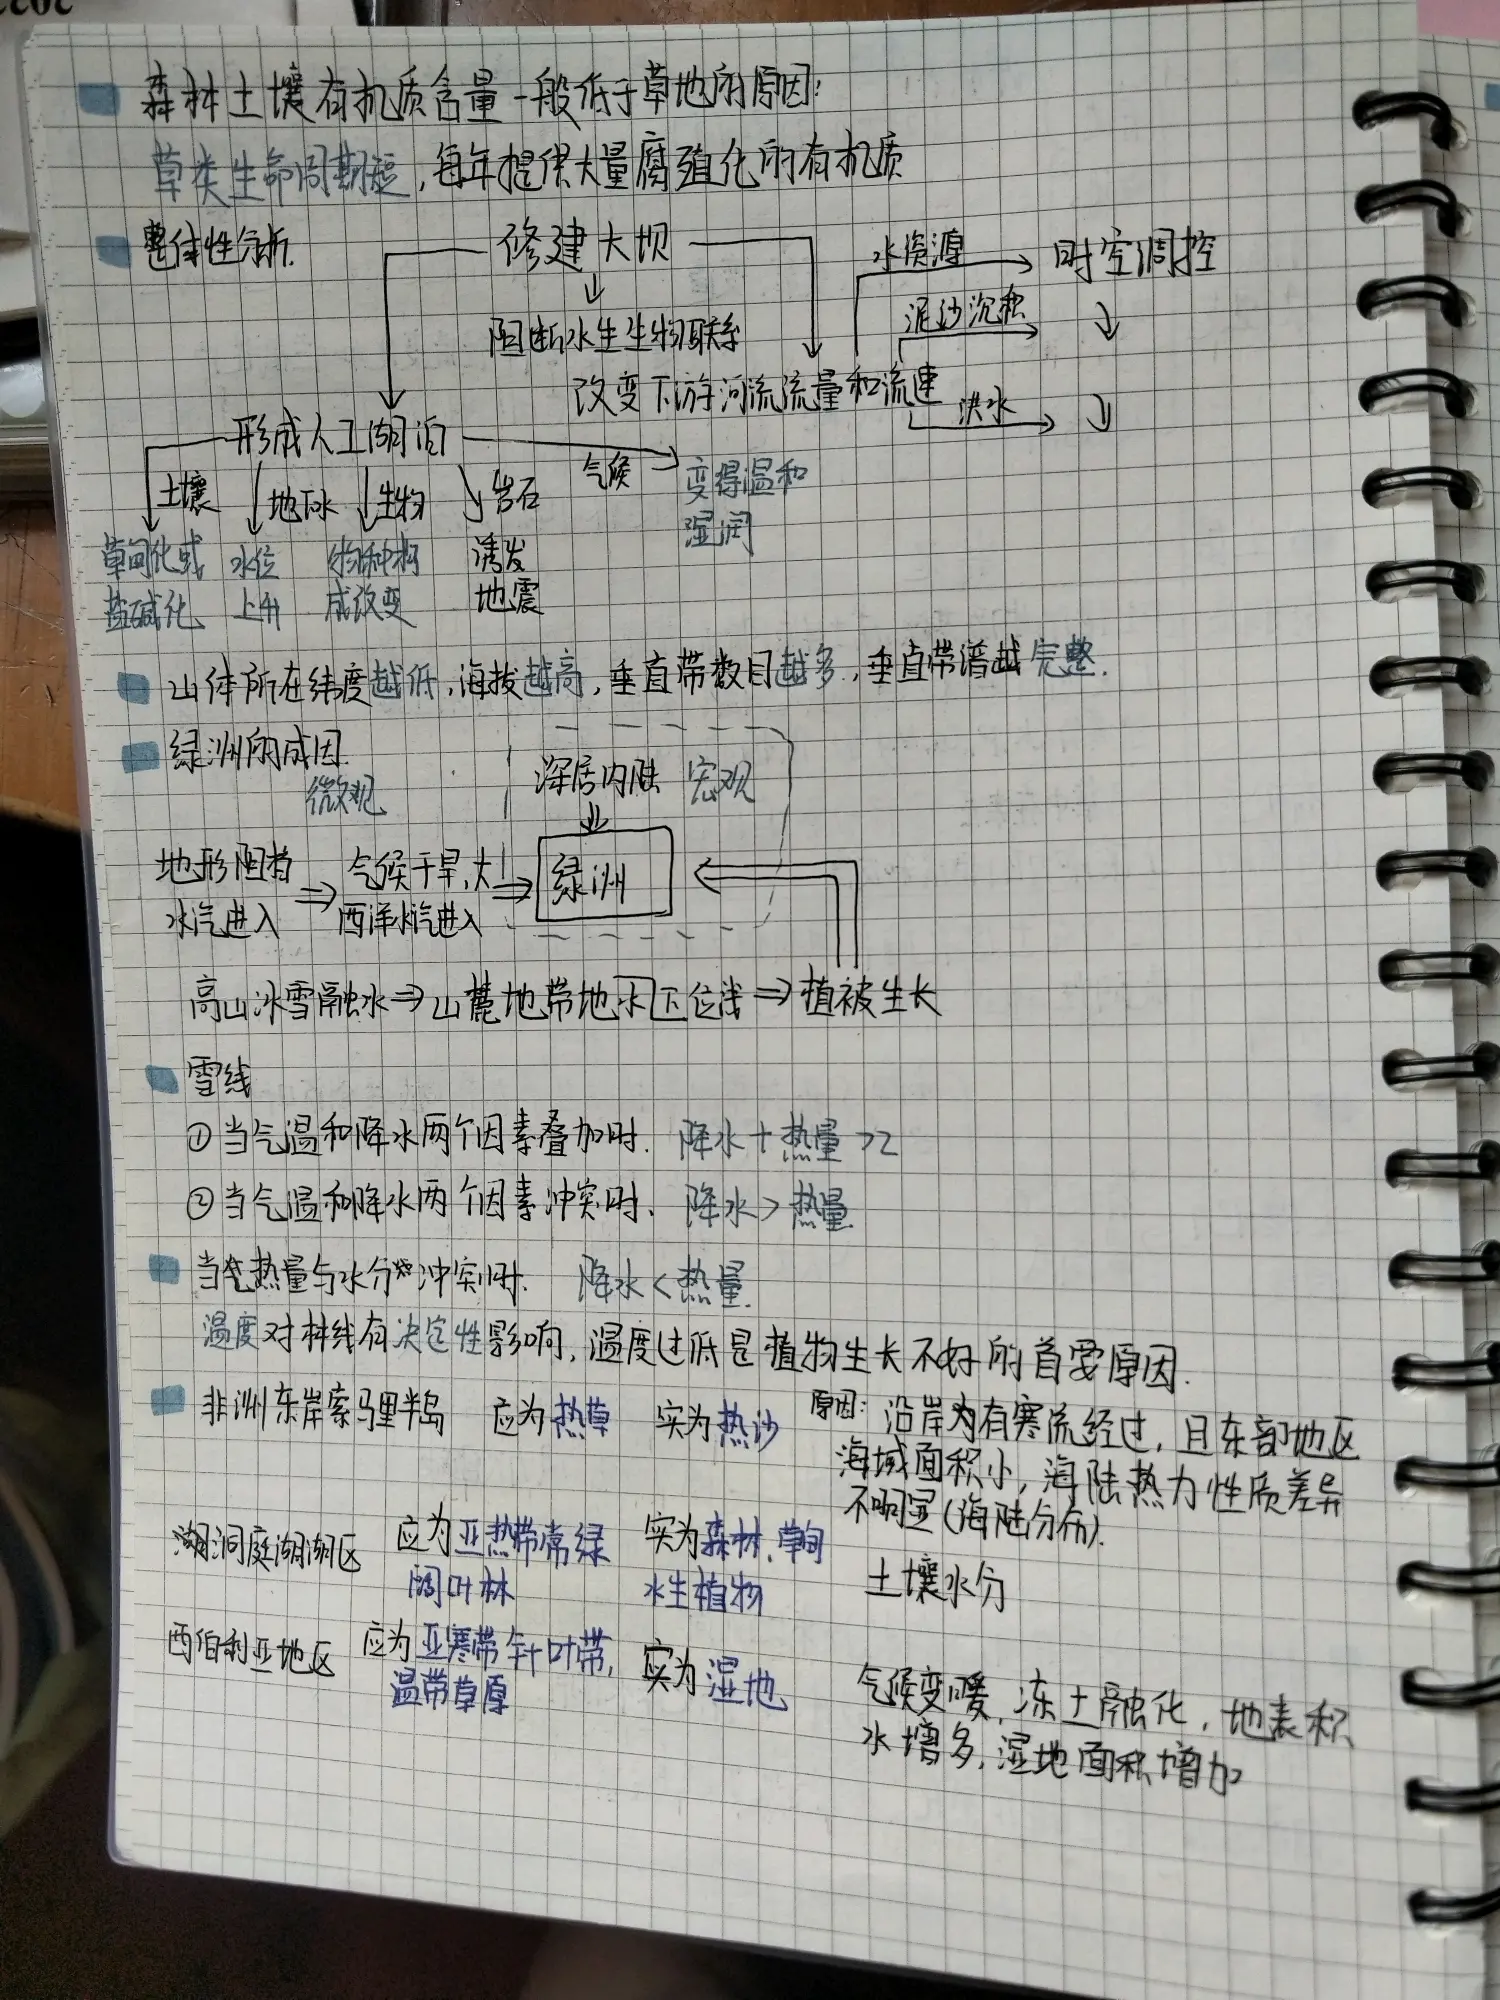 森林土壤有机质含量一般低于草地的原因:
草类生命周期短,每年提供大量腐殖化的有机质
整体性分析.
修建大坝
水资源
时空调控
泥沙沉积
阻断水生生物联系
改变下游河流流量和流速
洪水
形成人工湖泊
气候
变得温和
湿润
土壤
地下水
生物
岩石
草甸化或
盐碱化
水位
上升
物种构
成改变
诱发
地震
山体所在纬度越低,海拔越高,垂直带数目越多,垂直带谱越完整.
绿洲的成因
微观
深居内陆
宏观
地形阻挡
水汽进入
气候干旱,大
西洋水汽进入
绿洲
高山冰雪融水⇒山麓地带地下水位浅⇒植被生长
雪线
①当气温和降水两个因素叠加时. 降水+热量>2
②当气温和降水两个因素冲突时. 降水>热量.
当热量与水分冲突时. 降水<热量.
温度对林线有决定性影响,温度过低是植物生长不好的首要原因.
非洲东岸索马里半岛 应为热草 实为热沙 原因:沿岸有寒流经过,且东部地区
海域面积小,海陆热力性质差异
不明显(海陆分布).
洞庭湖湖区 应为亚热带常绿
阔叶林
实为森林、草甸
水生植物
土壤水分
西伯利亚地区 应为亚寒带针叶带,
温带草原
实为湿地
气候变暖,冻土融化,地表积
水增多,湿地面积增加